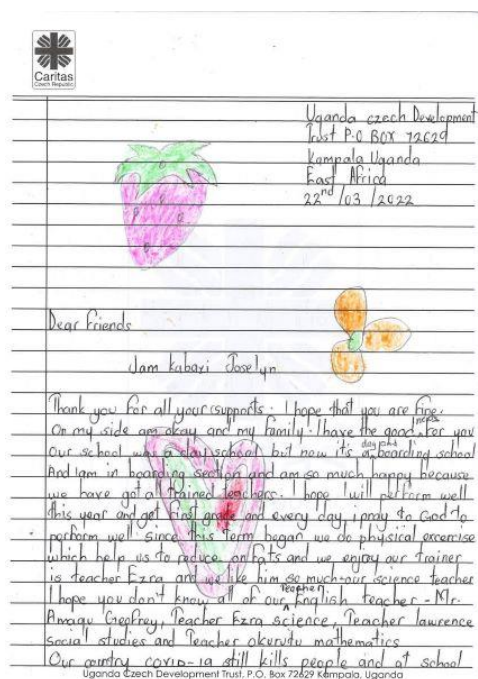 Caritas
Czech Republic
Uganda czech Development
Trust P.O BOX 72629
Kampala Uganda
East Africa
22nd /03 /2022
Dear friends
Iam Kabazi Joselyn
Thank you for all your supports. I hope that you are fine.
On my side am okay and my family. I have the good news for you
Our school was a day school but now it's a day and boarding school
And Iam in boarding section and am so much happy because
we have got a trained teachers. I hope I will perform well
this year and get first grade and every day i pray to God to
perform well. Since this term began we do physical excercise
which help us to reduce on fats and we enjoy our trainer
is teacher Ezra and we like him so much. our science teacher
I hope you don't know all of our Teacher English teacher - Mr.
Amagu Geofrey, Teacher Ezra science, Teacher lawrence
social studies and Teacher okurutu mathematics
Our country covid-19 still kills people and at school
Uganda Czech Development Trust, P.O. Box 72629 Kampala, Uganda